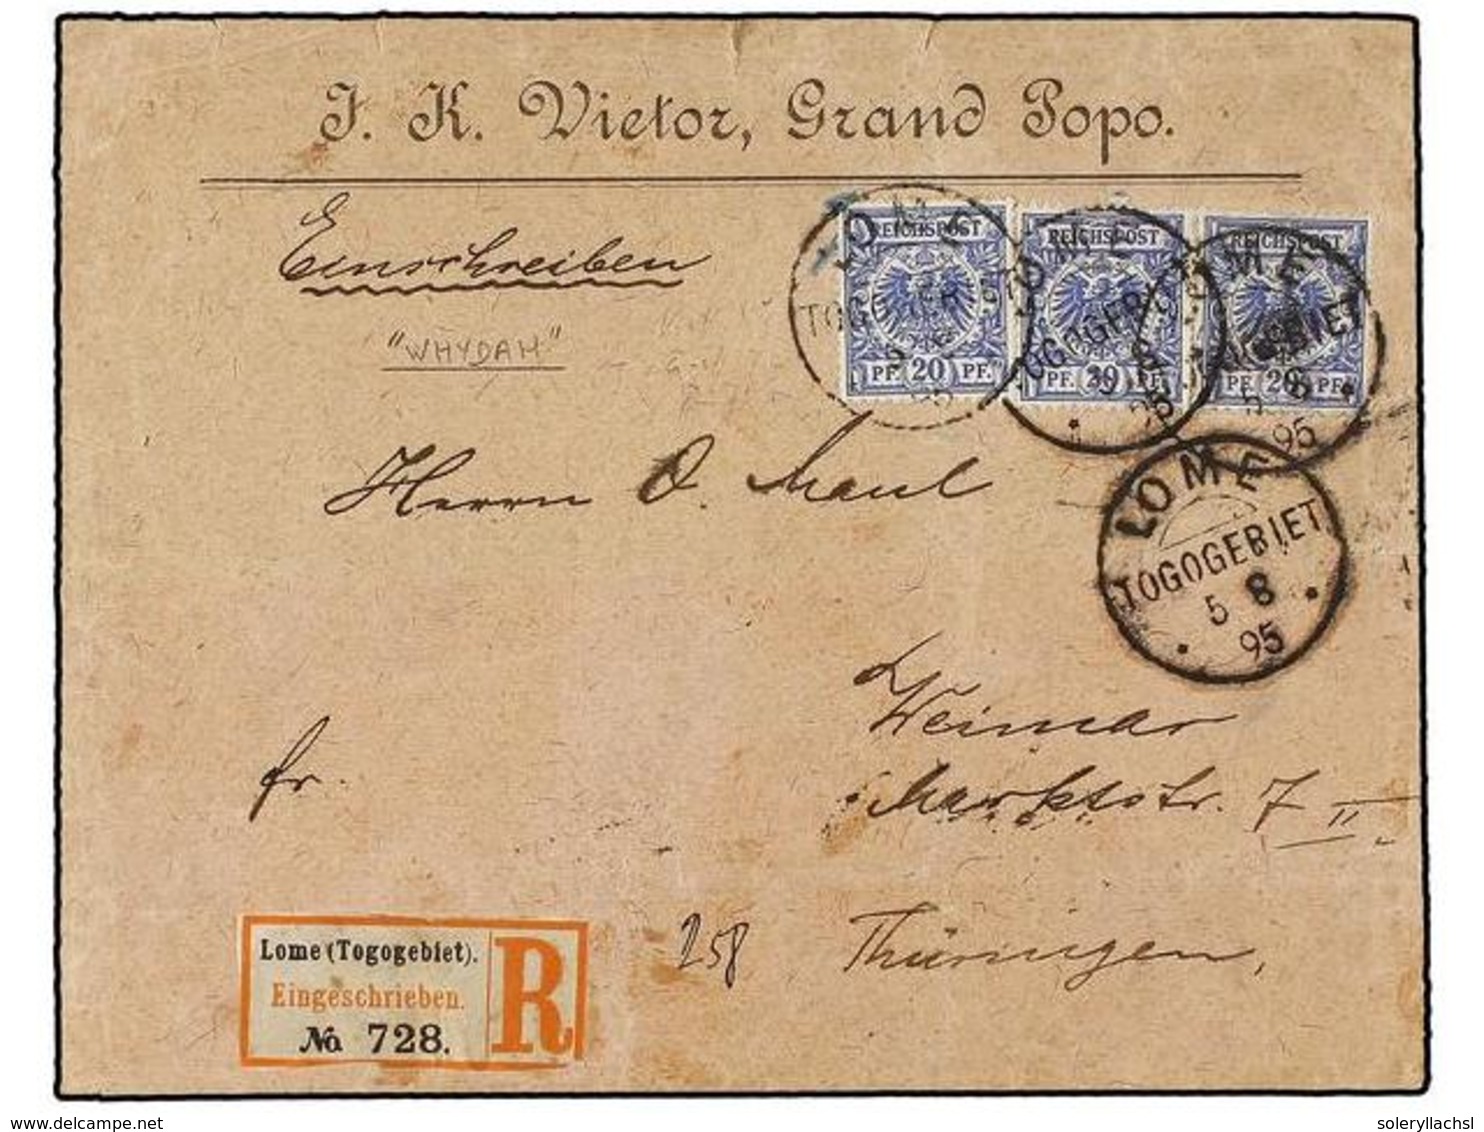 J. K. Vietor, Grand Popo.
Einschreiben
"WHYDAH"
REICHSPOST
PF. 20 PF.
REICHSPOST
PF. 20 PF.
REICHSPOST
PF. 20 PF.
LOME
TOGOGEBIET
5 8
95
LOME
TOGOGEBIET
5 8
95
LOME
TOGOGEBIET
5 8
95
LOME
TOGOGEBIET
5 8
95
Herrn O. Maul
Weimar
fr.
Marktstr. 7 II
Lome (Togogebiet).
Eingeschrieben.
No 728.
R
258
Thüringen,
delcampe.net
soleryllachsl